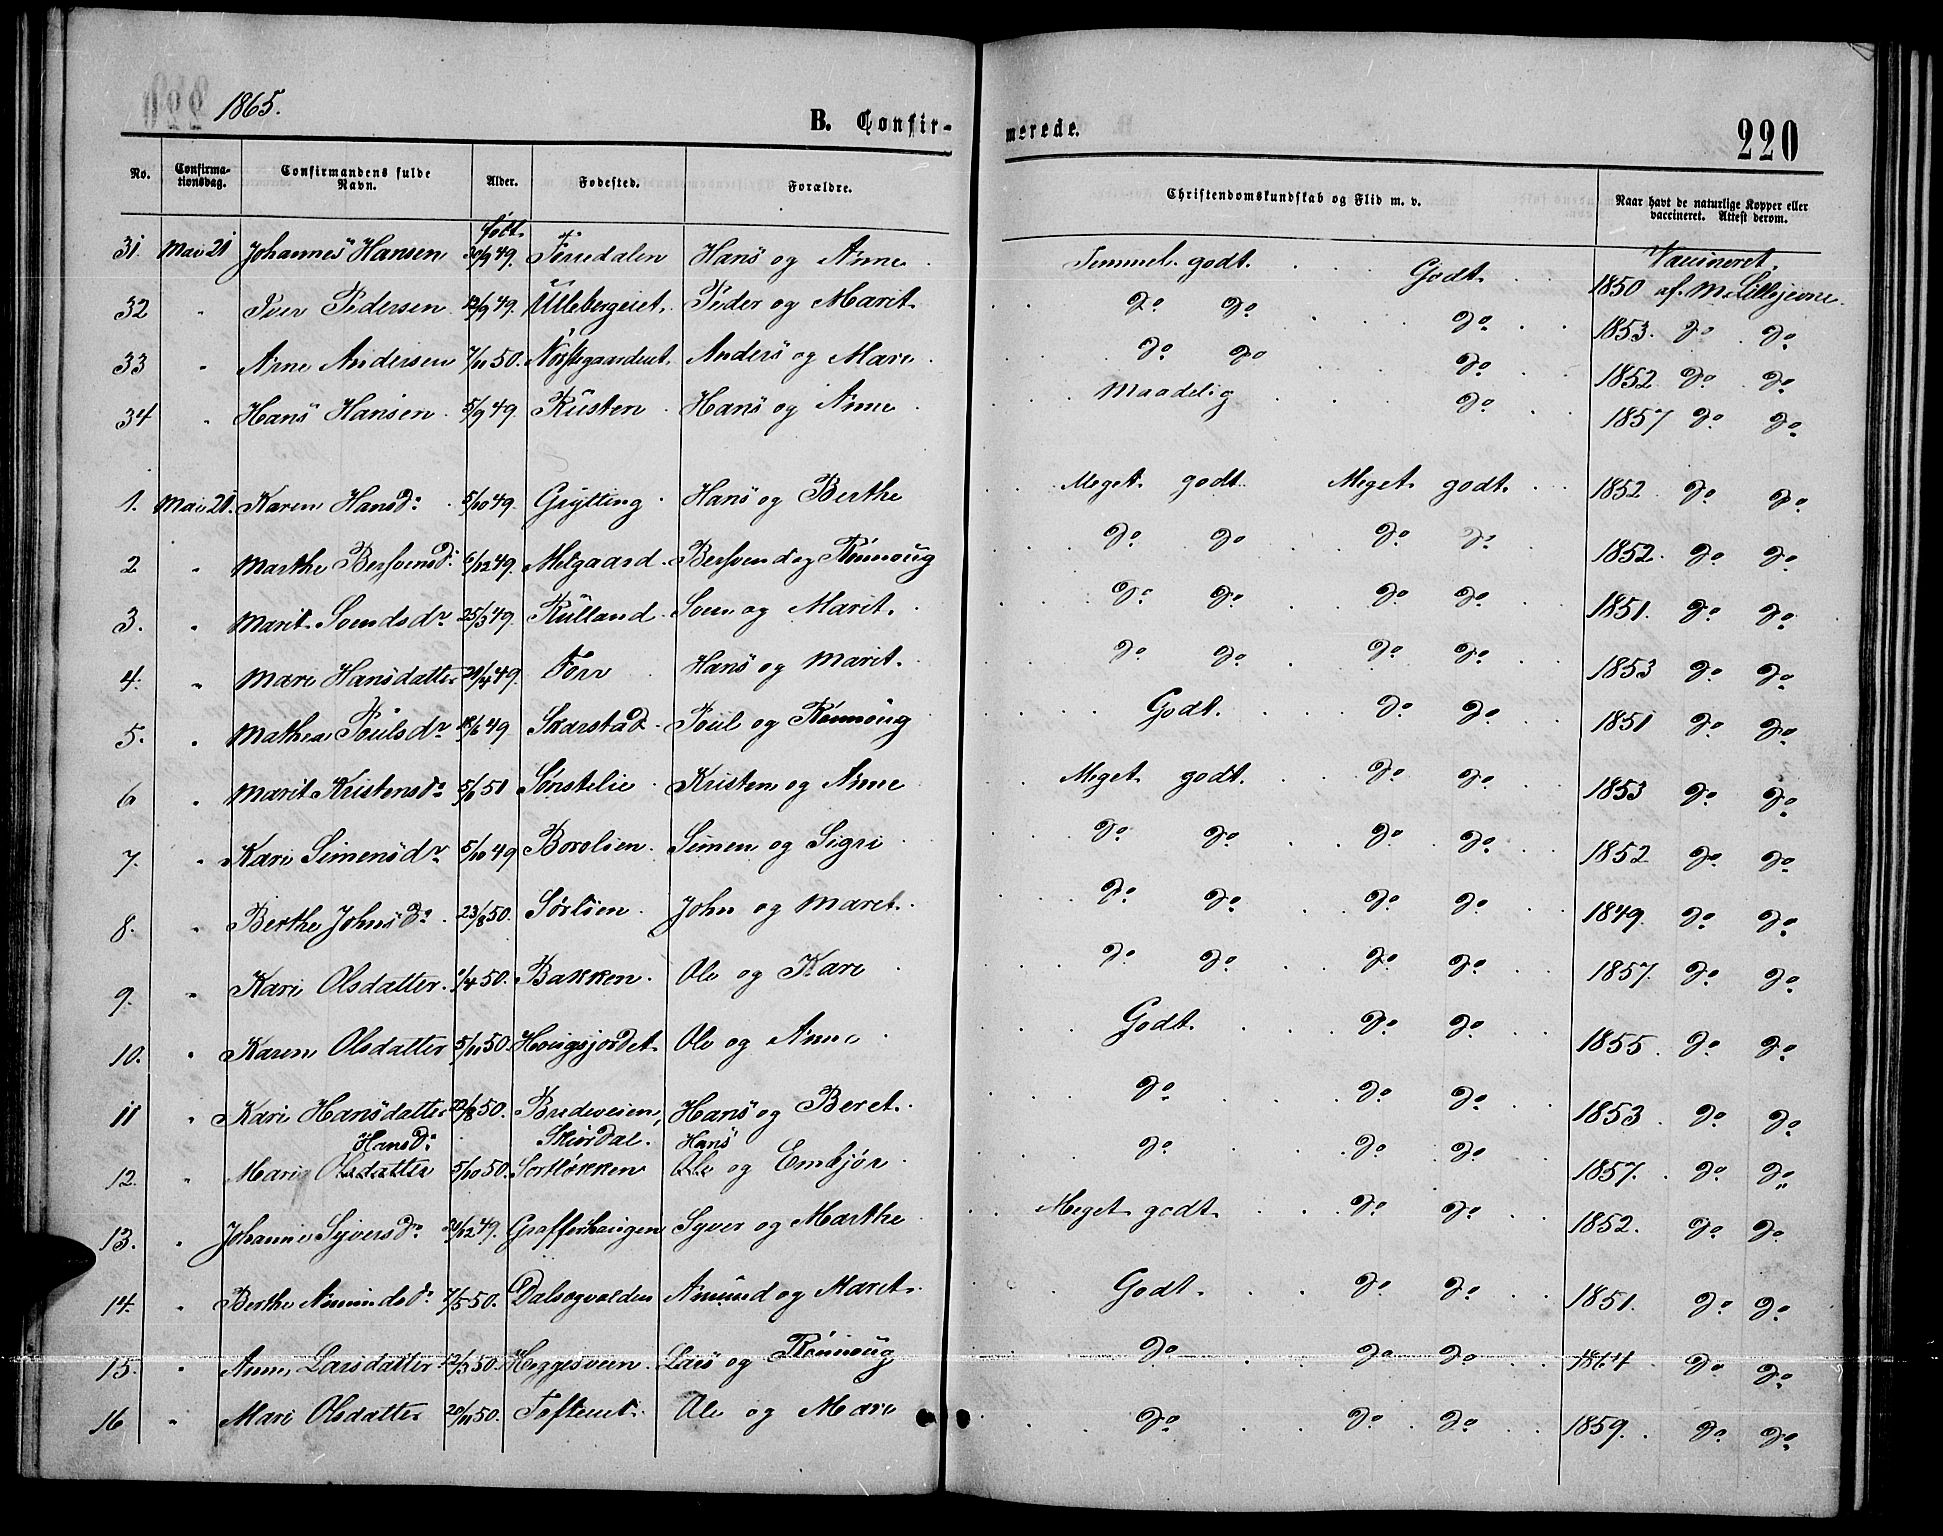 1865.
B. Confir-
merede.
220
No.
Confirma-
tionsdag.
Confirmandens fulde
Navn.
Alder.
Fødested.
Forældre.
Christendomskundskab og Flid m. v.
Naar havt de naturlige Kopper eller
vaccineret. Attest derom.
født. Vaccineret
31. Mai 21 Johannes Hansen 30/9 49. Hans og Anne Temmel. godt. Godt. 1850 af M.
32 " Iver Pedersen 12/9 49. Ullebergeiet. Peder og Marit. do do do 1853. do do
33 " Arne Andersen 7/11 50. Anders og Mari do do do 1852 do do
34 " Hans Hansen 5/9 49. Kusten Hans og Anne Maadelig do 1857 do do
1. Mai 21. Karen Hansd. 5/10 49. Grytting Hans og Berthe Meget godt Meget godt. 1852 do do
2 " Marthe Bersvensd. 6/12 49. Melgaard Bersvend og Rønnoug do do do do 1852. do do
3. " Marit Svendsdr 25/3 49. Rulland Sven og Marit. do do do do 1851. do do
4. " Mari Hansdatter 21/4 49. Forr Hans og Marit. do do do do 1853 do do
5. " Mathea Poulsdr 18/6 49 Skarstad Poul og Rønnoug Godt. do do 1851 do do
6 " Marit Kristensdr 50 Sønstelie Kristen og Anne Meget godt. do do 1853 do do
7. " Kari Simensdr 5/10 49 Borolien Simen og Sigri do do do do 1852 do do
8. " Berthe Johnsdr 23/8 50. Sørlien John og Maret. do do do do 1849. do do
9. " Kari Olsdatter. 1/4 50. Bakken Ole og Kari do do do do 1857. do do
10. " Karen Olsdatter 5/11 50. Haugsjordet Ole og Anne Godt. do do 1855. do do
11 " Kari Hansdatter 22/8 50. Bredeveien, Hans og Beret. do do do 1853 do do
Hansd. Skurdal. Hans
12. " Mari Olsdatter 5/10 50. Sortløkken Ole og Embjør do do do 1857. do do
13. " Johanne Syversdr 20/12 49. Grafferhaugen Syver og Marthe Meget godt do do 1852. do do
14. " Berthe Amundsd. 7/5 50. Dalsegvolden Amund og Maret. Godt. do do 1851. do do
15. " Anne Larsdatter 12/3 50. Heggesveen Lars og Rønnoug do do do 1864 do do
16 " Mari Olsdatter 20/11 50. Tofteeiet Ole og Mari do do do 1859. do do